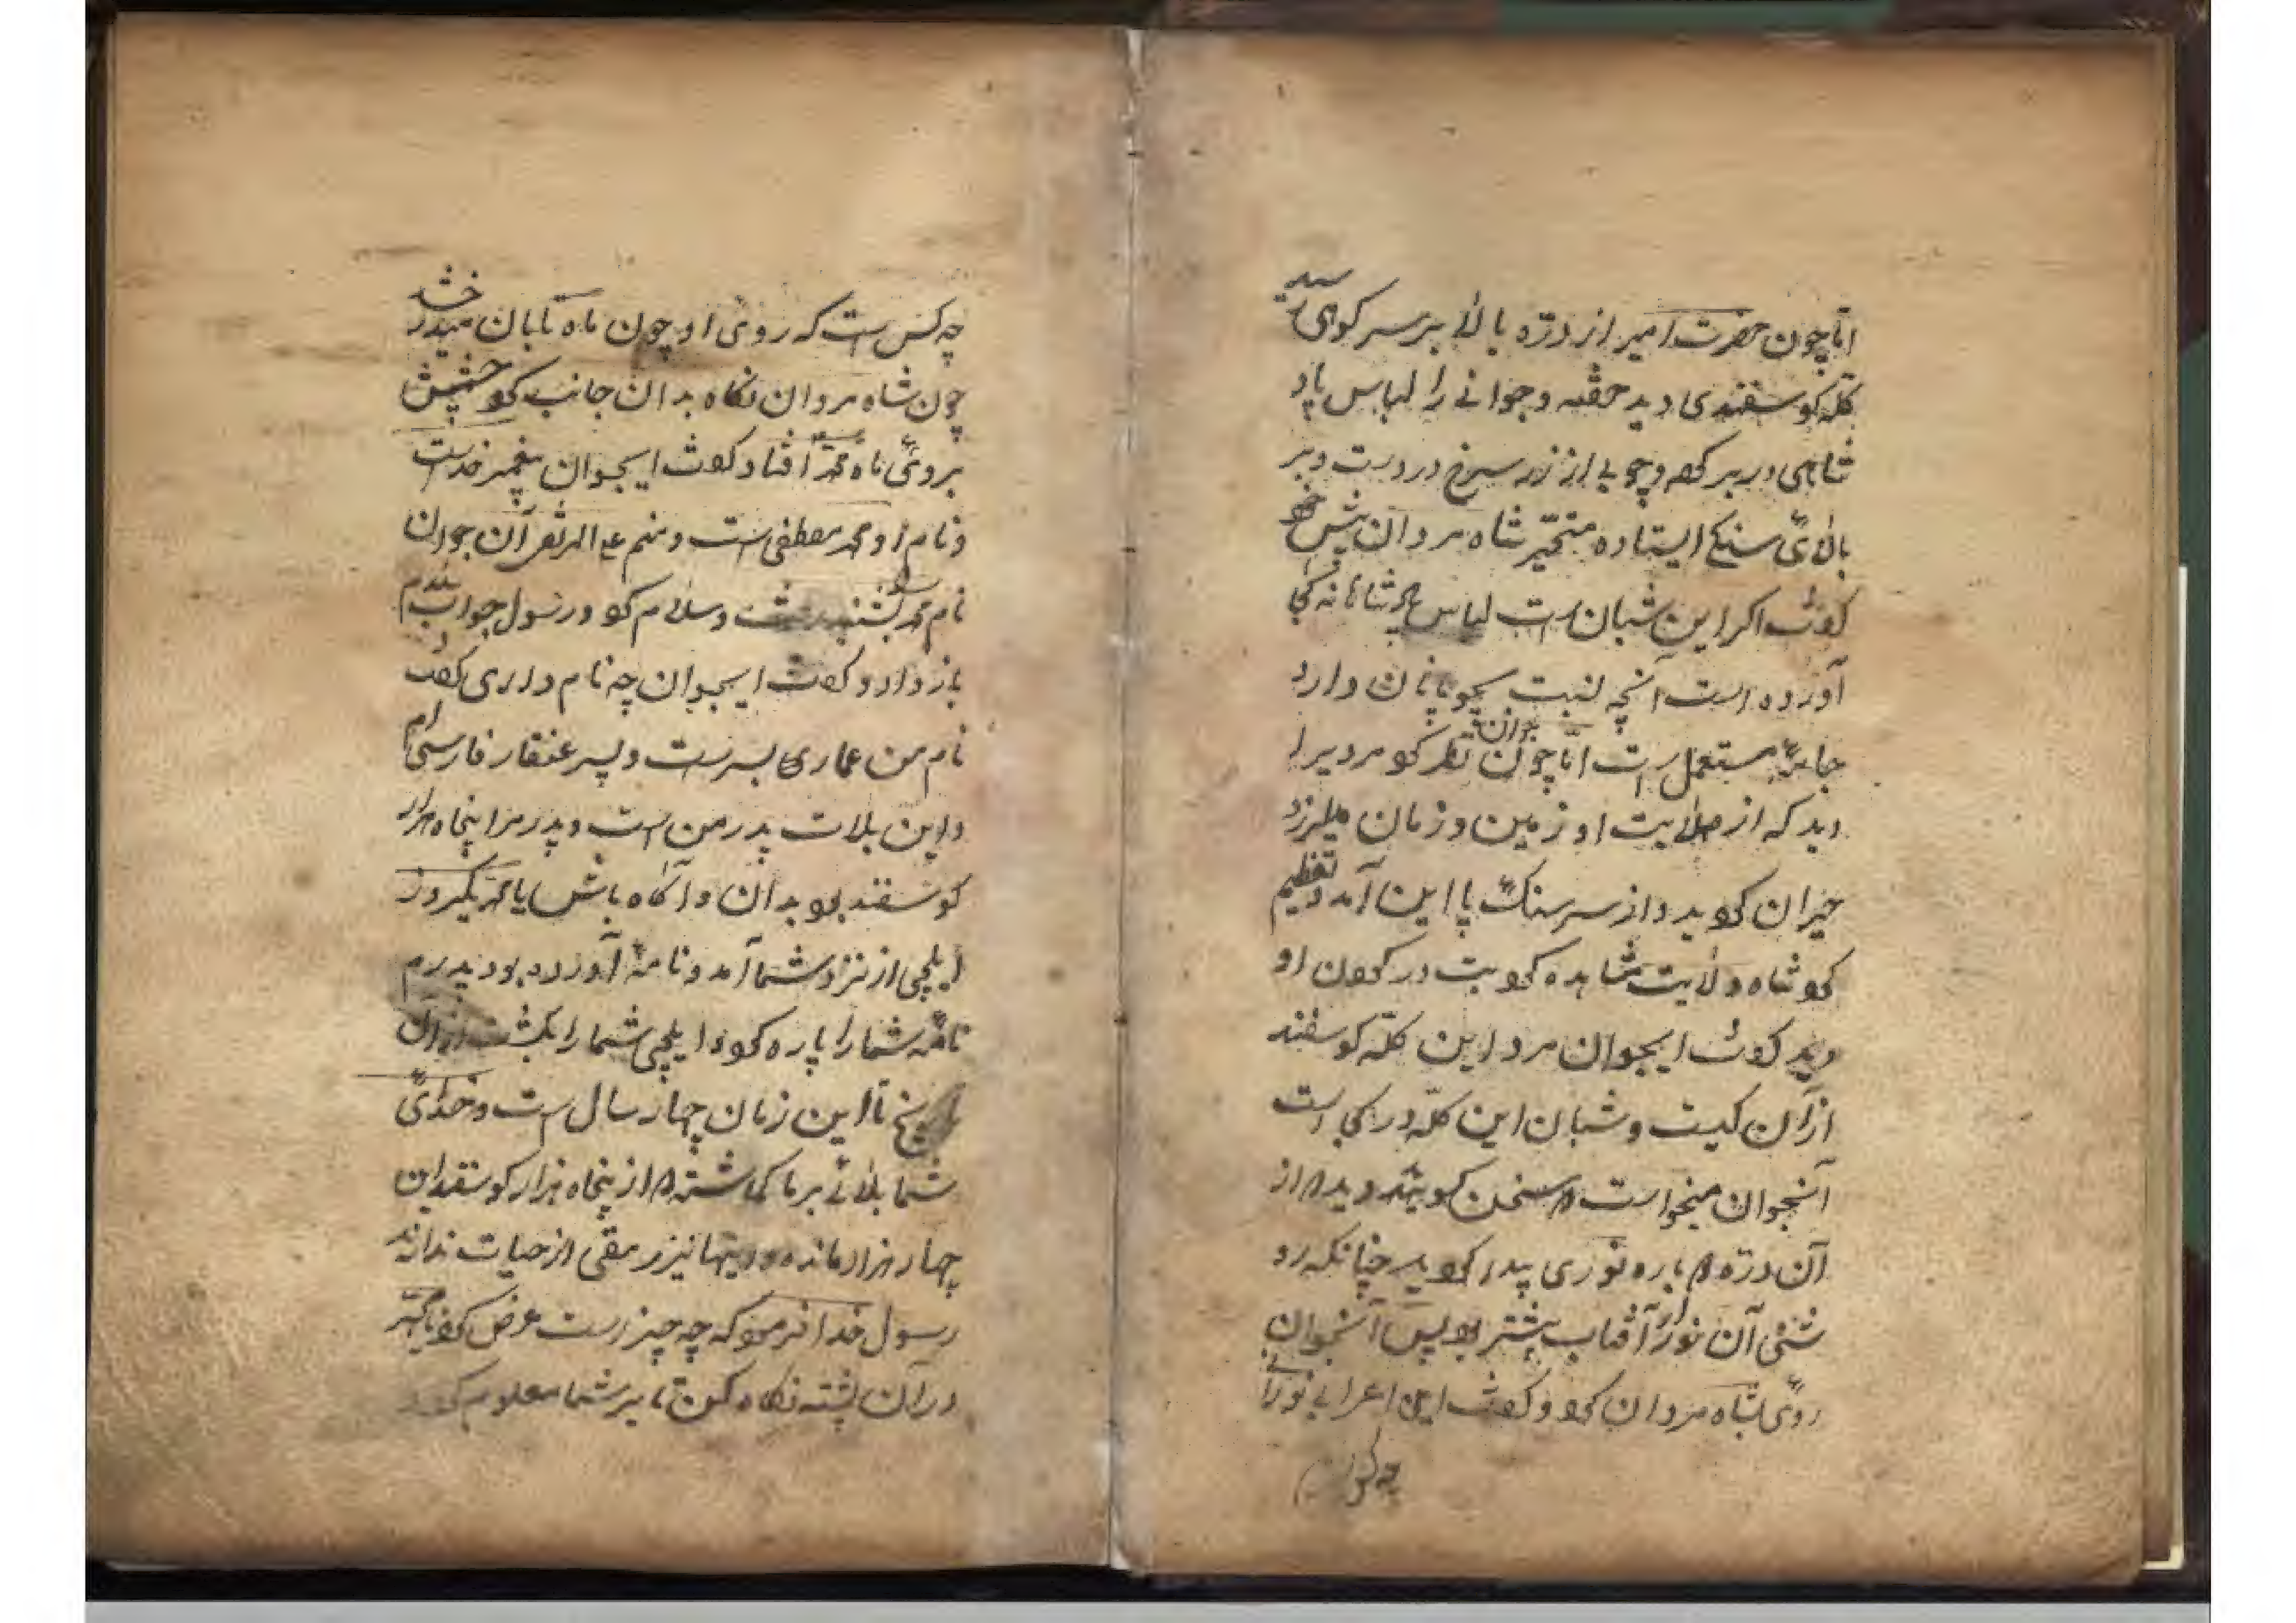 اما چون حضرت امیر از درّه بالا بر سر کوهی رسید
کلّه کوسفندی دید خفته و جوانے را لباس پاد
شاهی در بر کرد و چوبے از زر سرخ در دست و بر
بالای سنکے ایستاده متحیّر شاه مردان پیش خود
کفت اکر این شبان است لباس پادشاهانه کجا
آورده است انچه نسبت بچوپانان دارد
جامهٔ مستعمل است امّا چون جوان نظر کرد مردیرا
دید که از صلابت او زمین و زمان میلرزد
حیران کردید و از سر سنک پااین آمد و تعظیم
کرد شاه ولایت مشاهده کرد بت در کردن او
دید کفت ایجوان مرد این کلّه کوسفند
از آن کیست و شبان این کلّه در کجا است
آنجوان میخواست که سخن کوید دید که از
آن درّه پاره نوری پیدا کردید چنانکه رو
شنی آن نور از آفتاب بیشتر بود پس آنجوان
روی بشاه مردان کرد و کفت این اعرابی نورانی
چه کس است
چه کس است که روی او چون ماه تابان میدرخشد
چون شاه مردان نکاه بدان جانب کرد چشمش
بروی ماه محمد افتاد کفت ایجوان پیغمبر خداست
و نام او محمد مصطفی است و منم علی المرتضی آن جوان
نام محمد بشنید و سلام کرد و رسول جواب سلام
باز داد و کفت ایجوان چه نام داری کفت
نام من عماری پسر است و پسر عنقار فارسی ام
و این بلات پدر من است و پدر مرا پنجاه هزار
کوسفند بود بدان و آکاه باش یا محمد یکروز
ایلچی از نزد شما آمد و نامهٔ آورده بود پدرم
نامهٔ شما را پاره کرد و ایلچی شما را بکشت از آن
تاریخ تا این زمان چهار سال است و خدای
شما بلائے بر ما کماشته که از پنجاه هزار کوسفند این
چهار هزار مانده و اینها نیز رمقی از حیات ندارند
رسول خدا فرمود که چه چیز است عرض کرد یا محمد
در آن پشته نکاه کن تا بر شما معلوم کردد